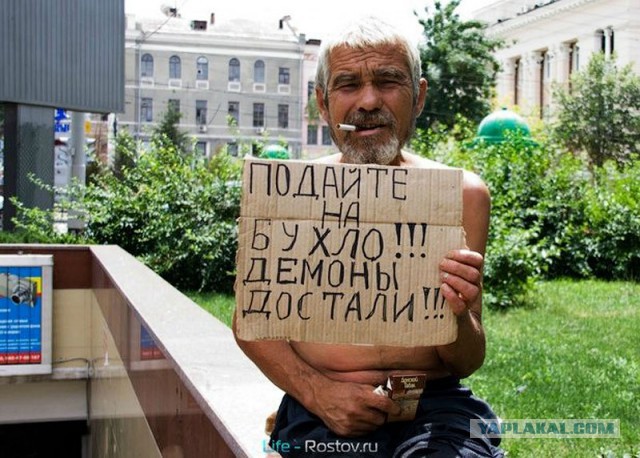 ПОДАЙТЕ
НА
БУХЛО!!!
ДЕМОНЫ
ДОСТАЛИ!!!
Life - Rostov.ru
YAPLAKAL.COM